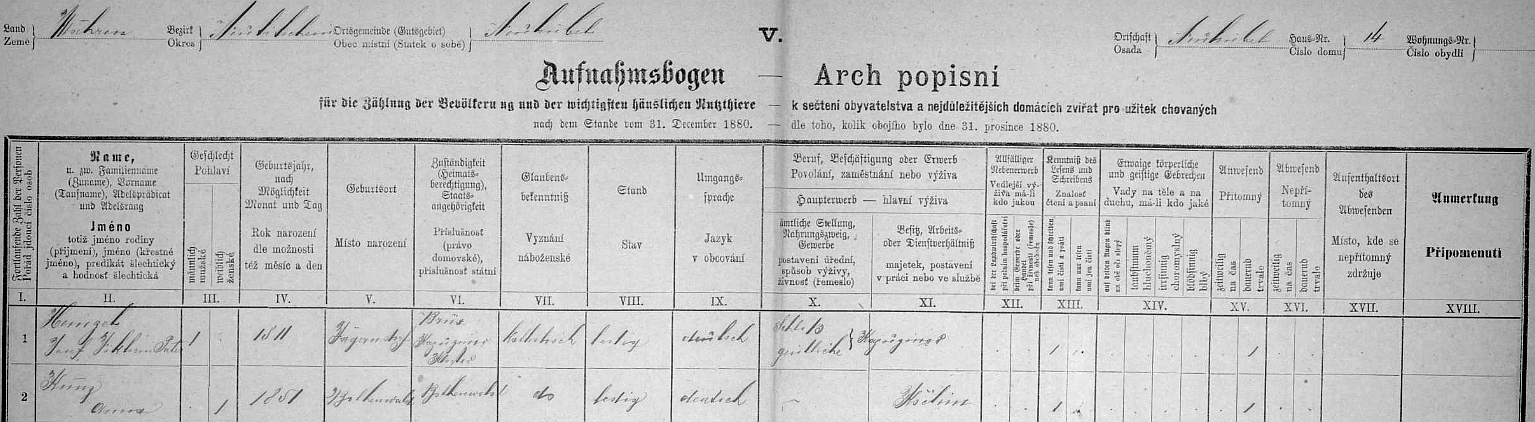 Land Mähren Bezirk Ortsgemeinde (Gutsgebiet) Neuhübel V. Ortschaft Neuhübel Haus-Nr. 14 Wohnungs-Nr.
Země Okres Obec místní (Statek o sobě) Osada Číslo domu Číslo obydlí
Aufnahmsbogen — Arch popisní
für die Zählung der Bevölkerung und der wichtigsten häuslichen Nutzthiere — k sečtení obyvatelstva a nejdůležitějších domácích zvířat pro užitek chovaných
nach dem Stande vom 31. December 1880. — dle toho, kolik obojího bylo dne 31. prosince 1880.
Fortlaufende Zahl der Personen
Pořád jdoucí číslo osob
Name,
u. zw. Familienname
(Zuname), Vorname
(Taufname), Adelsprädicat
und Adelsrang
Jméno
totiž jméno rodiny
(příjmení), jméno (křestné
jméno), predikát šlechtický
a hodnost šlechtická
Geschlecht
Pohlaví
männlich
mužské
weiblich
ženské
Geburtsjahr,
nach
Möglichkeit
Monat und Tag
Rok narození
dle možnosti
též měsíc a den
Geburtsort
Místo narození
Zuständigkeit
(Heimats-
berechtigung),
Staats-
angehörigkeit
Příslušnost
(právo
domovské),
příslušnost státní
Glaubens-
bekenntniß
Vyznání
náboženské
Stand
Stav
Umgangs-
sprache
Jazyk
v obcování
Beruf, Beschäftigung oder Erwerb
Povolání, zaměstnání nebo výživa
Haupterwerb — hlavní výživa
ämtliche Stellung,
Nahrungszweig,
Gewerbe
postavení úřední,
spůsob výživy,
živnost (řemeslo)
Besitz, Arbeits-
oder Dienstverhältniß
majetek, postavení
v práci nebo ve službě
Allfälliger
Nebenerwerb
Vedlejší vý-
živa má-li
kdo jakou
Kenntniß des
Lesens und
Schreibens
Znalosť
čtení a psaní
Etwaige körperliche
und geistige Gebrechen
Vady na těle a na
duchu, má-li kdo jaké
taubstumm
hluchoněmý
irrsinnig
choromyslný
blödsinnig
blbý
Anwesend
Přítomný
zeitweilig
na čas
dauernd
trvale
Abwesend
Nepří-
tomný
zeitweilig
na čas
dauernd
trvale
Aufenthaltsort
des
Abwesenden
Místo, kde se
nepřítomný
zdržuje
Anmerkung
Připomenutí
I. II. III. IV. V. VI. VII. VIII. IX. X. XI. XII. XIII. XIV. XV. XVI. XVII. XVIII.
1 1 1811 Brüx katholisch ledig deutsch geistliche Kapuziner 1 1 1
2 Anna 1 1851 do ledig deutsch — Köchin 1 1 1